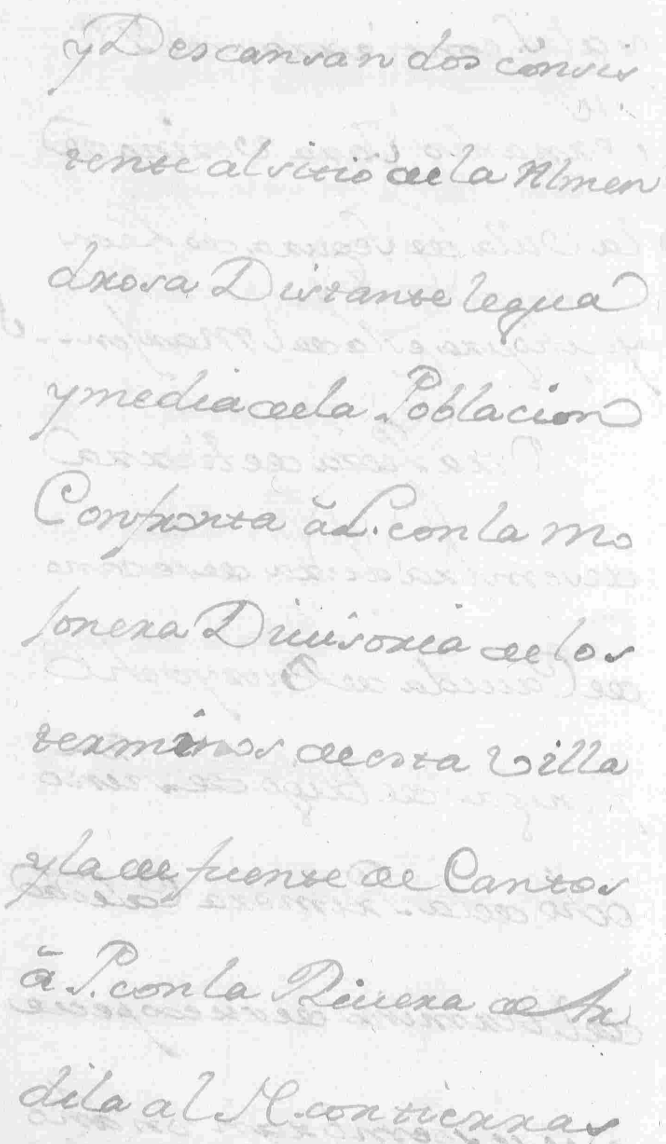 y Descansan dos consis
tente al sitio de la Almen
drosa Distante legua
y media de la Poblacion
Confronta â L. con la mo
jonera Divisoria de los
terminos de esta Villa
y la de fuente de Cantos
â P. con la Rivera de Ar
dila al N. con tierras